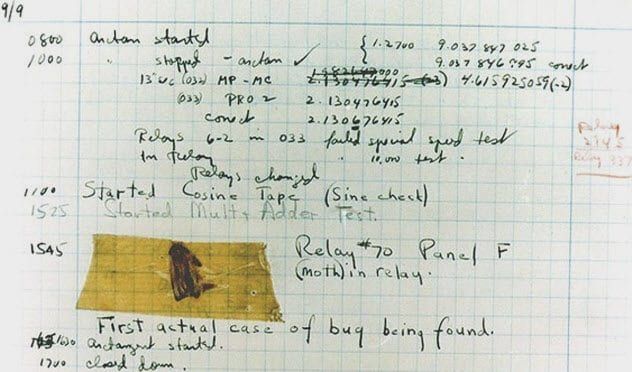 9/9
0800 Antan started { 1.2700 9.037 847 025
1000 " stopped - antan ✓ 9.037 846 795 correct
13"uc (032) MP-MC 2.130476415 (-3) 4.615925059(-2)
(033) PRO 2 2.130476415
correct 2.130676415
Relays 6-2 in 033 failed special speed test
In Relay " 10.000 test.
Relay 3145
Relay 337
Relays changed
1100 Started Cosine Tape (Sine check)
1525 Started Mult + Adder Test.
1545 Relay #70 Panel F
(moth) in relay.
First actual case of bug being found.
1630 antangent started.
1700 closed down.